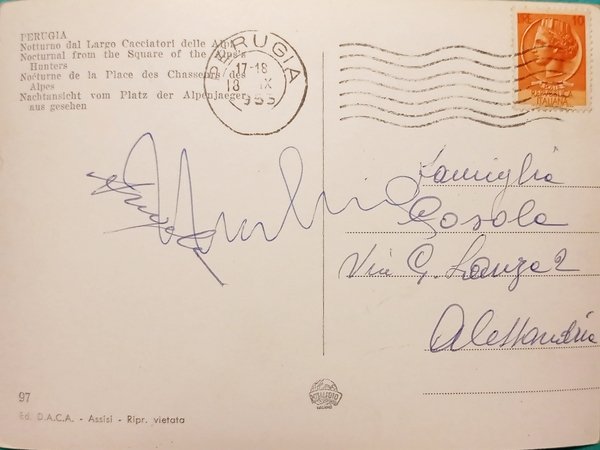 PERUGIA
Notturno dal Largo Cacciatori delle Alpi
Nocturnal from the Square of the Alps's
Hunters
Nocturne de la Place des Chasseurs des
Alpes
Nachtansicht vom Platz der Alpenjaeger
aus gesehen
PERUGIA
17-18
18 IX
1955
10
ITALIANA
Famiglia
Gosola
Via G. Lanza 2
Alessandria
97
Ed. D.A.C.A. - Assisi - Ripr. vietata